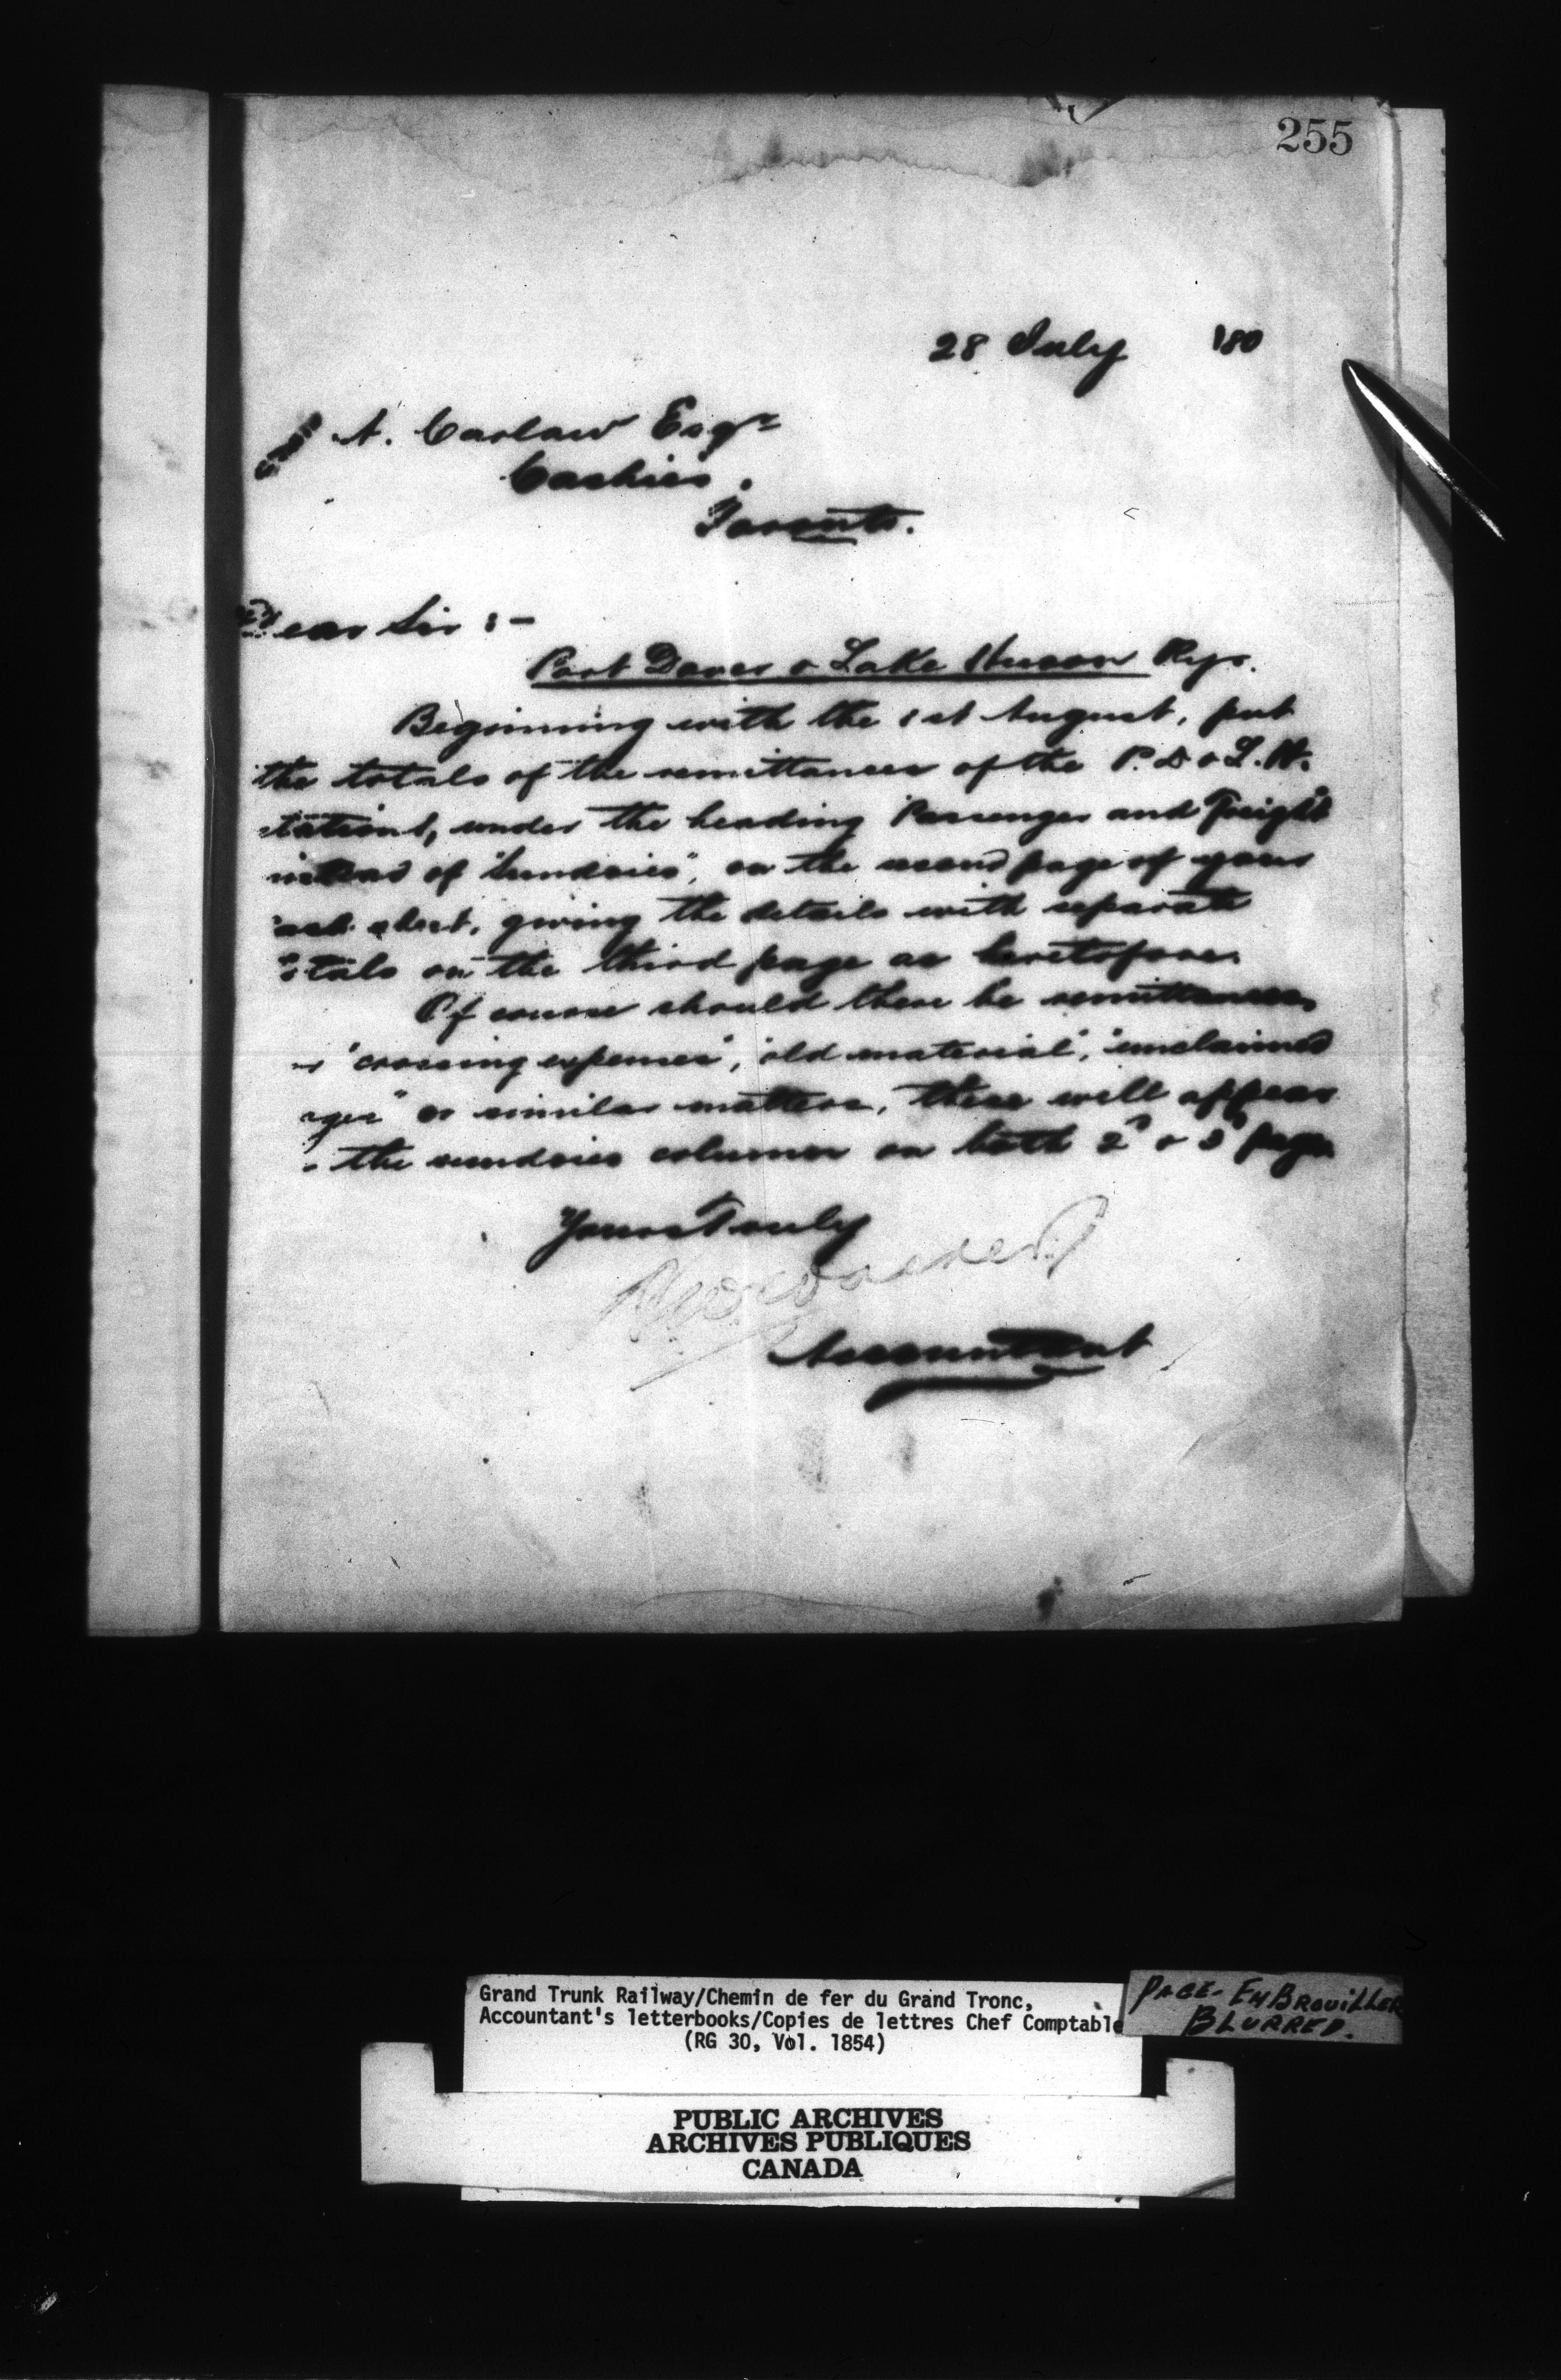 255
28 July 180
A. Carlaw Esqr
Cashier.
Toronto.
Dear Sir :-
Port Dover & Lake Huron Rys.
Beginning with the 1st August, put
the totals of the remittances of the P. D & L. H.
tations, under the heading Passenger and Freight
instead of "Sundries", on the second page of your
ash sheet, giving the details with separate
otals on the third page as heretofore.
Of course should there be remittances
"crossing expenses", "old material", "unclaimed
ages" or similar matters, these will appear
the sundries columns on both 2d & 3d page
Yours Truly
Accountant
Grand Trunk Railway/Chemin de fer du Grand Tronc,
Accountant's letterbooks/Copies de lettres Chef Comptable
(RG 30, Vol. 1854)
PAGE - EMBROUILLER
BLURRED.
PUBLIC ARCHIVES
ARCHIVES PUBLIQUES
CANADA